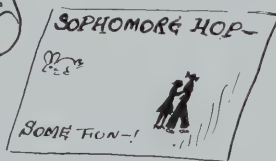 SOPHOMORE HOP-
SOME FUN-!